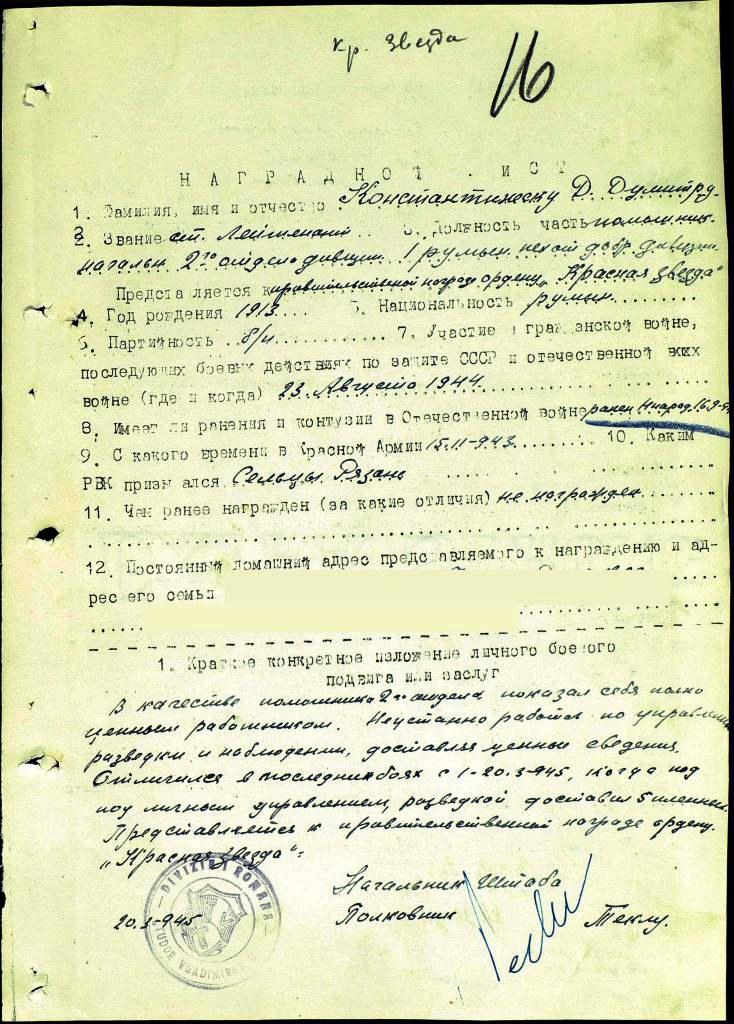 Кр. Звезда
16
НАГРАДНОЙ ИСТ
1. Фамилия, имя и отчество Константинеску Д. Думитру.
2. Звание ст. Лейтенант 3. Должность часть помошник
начальн 2го отдела дивизии 1 румын. пехот добр. дивизии
Представляется к правительственной награде ордену „Красная звезда"
4. Год рождения 1913 5. Национальность румын.
6. Партийность б/п 7. Участие в гражданской войне,
последующих боевых действиях по защите СССР и отечественной
войне (где и когда) 23 Августа 1944
8. Имеет ли ранения и контузии в Отечественной войне ранен
9. С какого времени в Красной Армии 15.11-943. 10. Каким
РВК призывался Сельцы Рязань
11. Чем ранее награжден (за какие отличия) не награжден
12. Постоянный домашний адрес представляемого к награждению и ад-
рес его семьи
1. Краткое конкретное изложение личного боевого
подвига или заслуг
В качестве помошника 2го отдела показал себя полно
ценным работником. Неустанно работал по управлени
разведки и наблюдении, доставляя ценные сведения.
Отличился в последних боях с 1-20.3-945, когда под
под личным управлением, разведкой доставил 5 пленных.
Представляется к правительственной награде ордену.
„Красная звезда":
Начальник Штаба
20.3-945 Полковник Теклу.
DIVIZIA I ROMANA
TUDOR VLADIMIRESCU